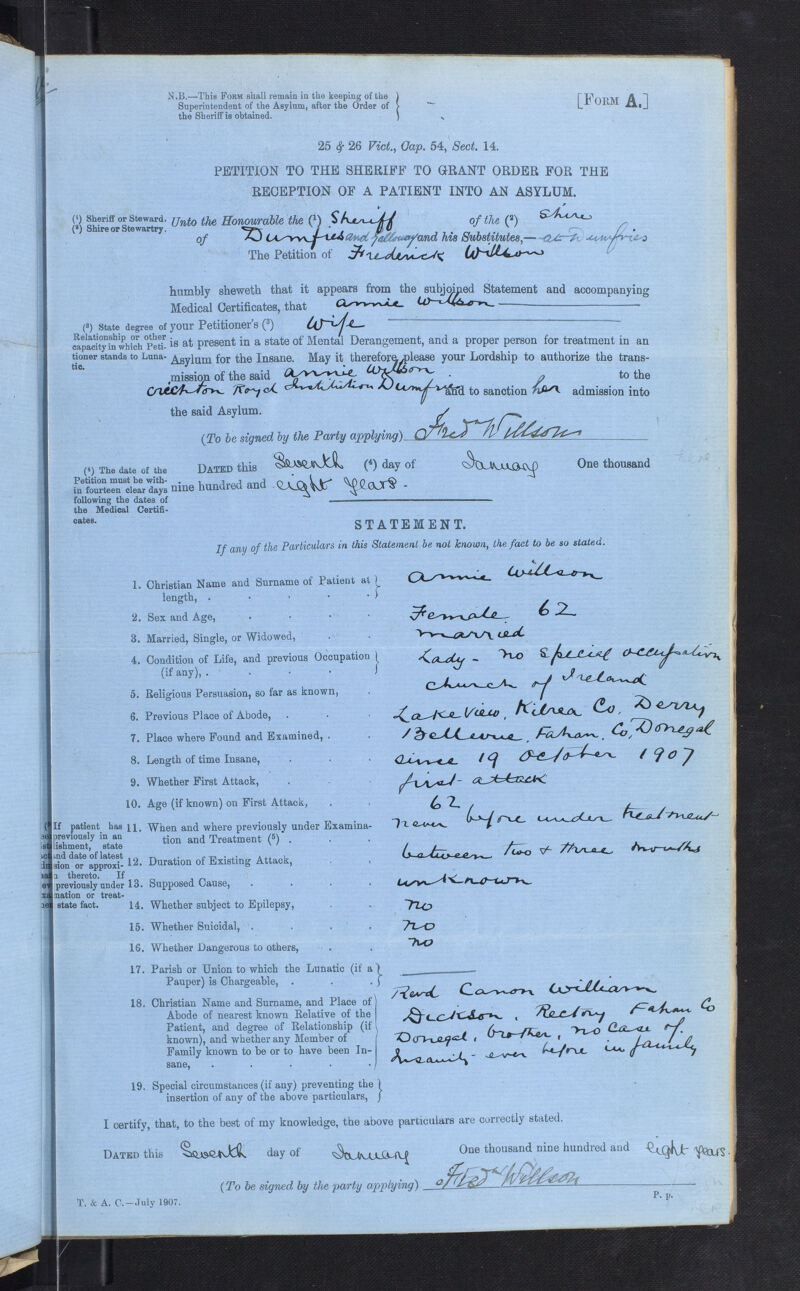 N.B.—This Form shall remain in the keeping of the
Superintendent of the Asylum, after the Order of
the Sheriff is obtained.
[Form A.]
25 & 26 Vict., Cap. 54, Sect. 14.
PETITION TO THE SHERIFF TO GRANT ORDER FOR THE
RECEPTION OF A PATIENT INTO AN ASYLUM.
(1) Sheriff or Steward.
(2) Shire or Stewartry.
Unto the Honourable the (1) Sheriff of the (2) Shire
of Dumfries and Galloway and his Substitutes,— at Dumfries
The Petition of Frederick Willson
humbly sheweth that it appears from the subjoined Statement and accompanying
Medical Certificates, that Annie Willson
(3) State degree of
Relationship or other
capacity in which Peti-
tioner stands to Luna-
tic.
your Petitioner's (3) Wife
is at present in a state of Mental Derangement, and a proper person for treatment in an
Asylum for the Insane. May it therefore please your Lordship to authorize the trans-
mission of the said Annie Willson to the
Crichton Royal Institution Dumfries and to sanction her admission into
the said Asylum.
(To be signed by the Party applying) Fredk Willson
(4) The date of the
Petition must be with-
in fourteen clear days
following the dates of
the Medical Certifi-
cates.
Dated this Seventh (4) day of January One thousand
nine hundred and eight years.
STATEMENT.
If any of the Particulars in this Statement be not known, the fact to be so stated.
1. Christian Name and Surname of Patient at
length, Annie Willson
2. Sex and Age, Female 62
3. Married, Single, or Widowed, married
4. Condition of Life, and previous Occupation
(if any), Lady - no special occupation
5. Religious Persuasion, so far as known, church of Ireland
6. Previous Place of Abode, Lake View, Kilrea Co. Derry
7. Place where Found and Examined, Bellevue, Fahan, Co, Donegal
8. Length of time Insane, since 19 October 1907
9. Whether First Attack, first attack
10. Age (if known) on First Attack, 62
If patient has
previously in an
ishment, state
and date of latest
sion or approxi-
thereto. If
previously under
nation or treat-
state fact.
11. When and where previously under Examina-
tion and Treatment (5) never before under treatment
12. Duration of Existing Attack, between two & three months
13. Supposed Cause, unknown
14. Whether subject to Epilepsy, no
15. Whether Suicidal, no
16. Whether Dangerous to others, no
17. Parish or Union to which the Lunatic (if a
Pauper) is Chargeable,
18. Christian Name and Surname, and Place of
Abode of nearest known Relative of the
Patient, and degree of Relationship (if
known), and whether any Member of
Family known to be or to have been In-
sane,
Revd Canon William
Dickson, Rectory Fahan Co
Donegal, brother, no case of
Insanity ever before in family
19. Special circumstances (if any) preventing the
insertion of any of the above particulars,
I certify, that, to the best of my knowledge, the above particulars are correctly stated.
Dated this Seventh day of January One thousand nine hundred and eight years.
(To be signed by the party applying) Fredk Willson
T. & A. C.—July 1907.
P. p.